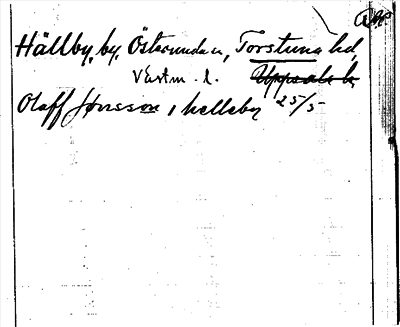 Hällby, by, Österunda sn, Torstuna hd,
Västm. l. Uppsala l.
Olaff Jönsson i helleby 25/5